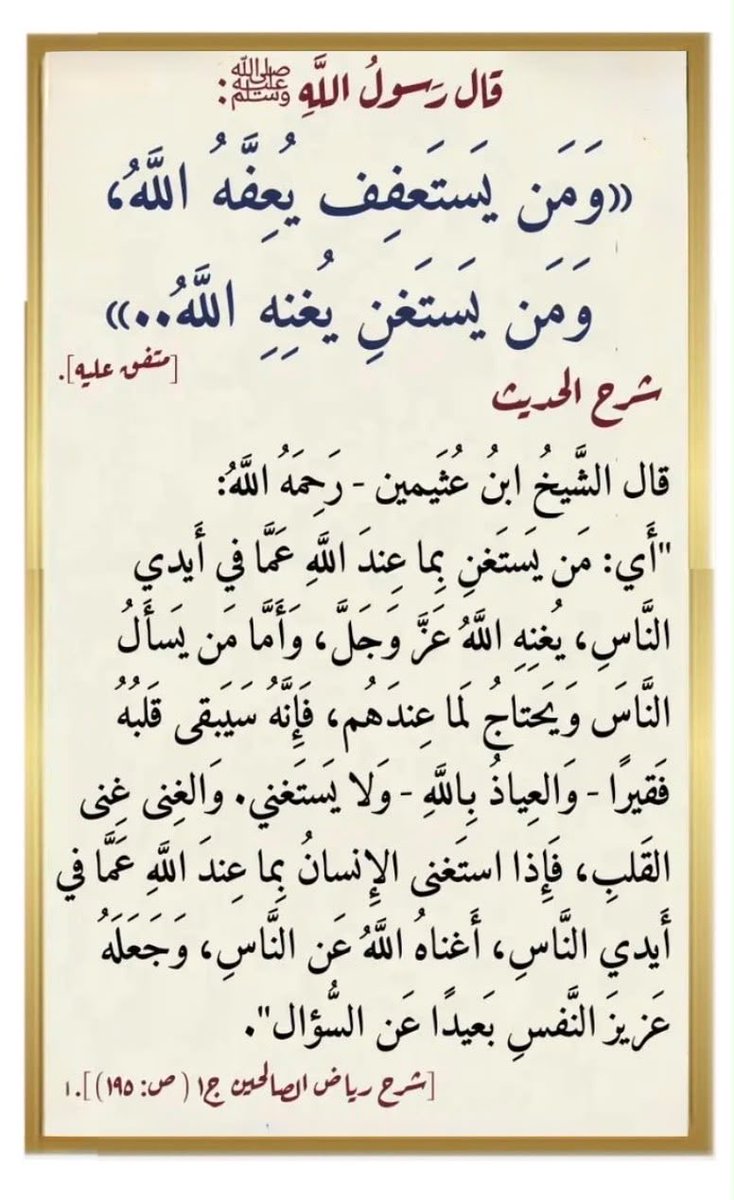 قال رَسولُ اللَّهِ ﷺ:
«وَمَن يَستَعفِف يُعِفَّهُ اللَّهُ،
وَمَن يَستَغنِ يُغنِهِ اللَّهُ..»
[متفق عليه].
شرح الحديث
قال الشَّيخُ ابنُ عُثَيمين - رَحِمَهُ اللَّهُ:
"أَي: مَن يَستَغنِ بِما عِندَ اللَّهِ عَمَّا في أَيدي
النَّاسِ، يُغنِهِ اللَّهُ عَزَّ وَجَلَّ، وَأَمَّا مَن يَسأَلُ
النَّاسَ وَيَحتاجُ لَما عِندَهُم، فَإِنَّهُ سَيَبقى قَلبُهُ
فَقيرًا - وَالعِياذُ بِاللَّهِ - وَلا يَستَغني. وَالغِنى غِنى
القَلبِ، فَإِذا استَغنى الإِنسانُ بِما عِندَ اللَّهِ عَمَّا في
أَيدي النَّاسِ، أَغناهُ اللَّهُ عَن النَّاسِ، وَجَعَلَهُ
عَزيزَ النَّفسِ بَعيدًا عَن السُّؤال".
[شرح رياض الصالحين ج١ (ص: ١٩٥)].١